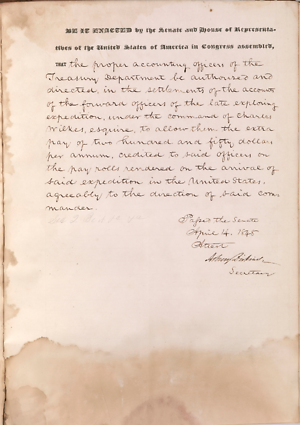 BE IT ENACTED by the Senate and House of Representa-
tives of the United States of America in Congress assembled,
THAT the proper accounting officers of the
Treasury Department be authorized and
directed in the settlements of the accounts
of the forward officers of the late exploring
expedition, under the command of Charles
Wilkes, esquire, to allow them the extra
pay of two hundred and fifty dollars
per annum, credited to said officers on
the pay rolls rendered on the arrival of
said expedition in the United States,
agreeably to the direction of said com-
mander.
Passed the Senate
April 4. 1848
Attest
Asbury Dickins
Secretary